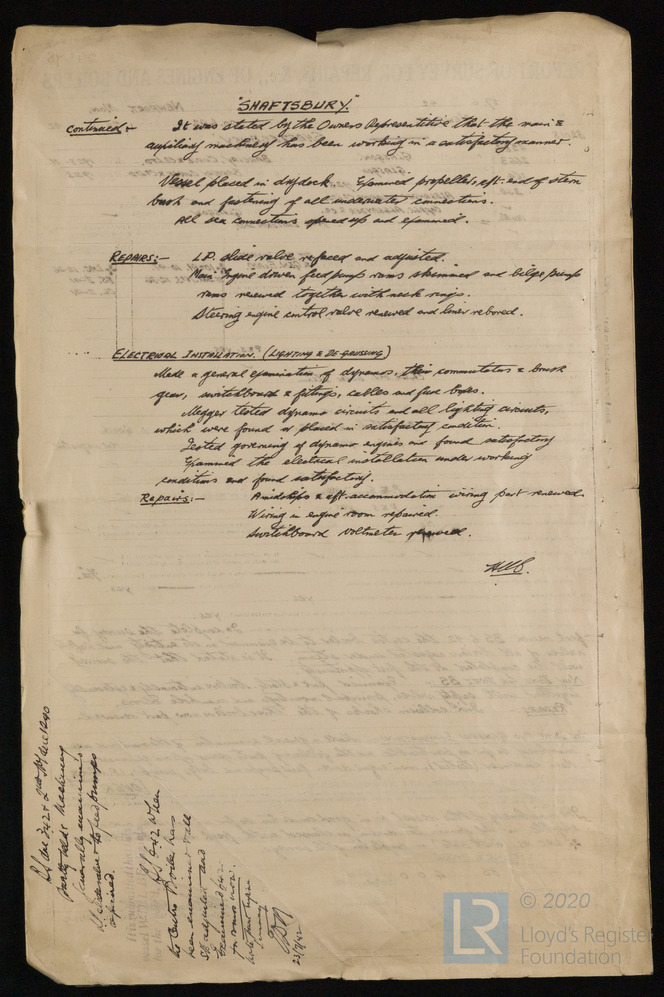 "SHAFTSBURY."
Continued:-
It was stated by the Owners Representative that the main &
auxiliary machinery has been working in a satisfactory manner.
Vessel placed in drydock. Examined propeller, aft end of stern
bush and fastening of all underwater connections.
All sea connections opened up and examined.
REPAIRS:- L.P. slide valve refaced and adjusted.
Main Engine driven feed pump rams skimmed and bilge pump
rams renewed together with neck rings.
Steering engine control valve renewed and liner rebored.
ELECTRICAL INSTALLATION. (LIGHTING & DE-GAUSSING)
Made a general examination of dynamos, their commutators & brush
gear, switchboard & fittings, cables and fuse boxes.
Megger tested dynamo circuits and all lighting circuits,
which were found or placed in satisfactory condition.
Tested governing of dynamo engines and found satisfactory
Examined the electrical installation under working
conditions and found satisfactory.
Repairs:- Amidships & aft accommodation wiring part renewed.
Wiring in engine room repaired.
Switchboard voltmeter renewed.
machinery
generally examined
feed pumps
repaired.
when
the Centre Boiler has
been examined &
SV adjusted and
examined
21/9/42
© 2020
LR
Lloyd's Register
Foundation